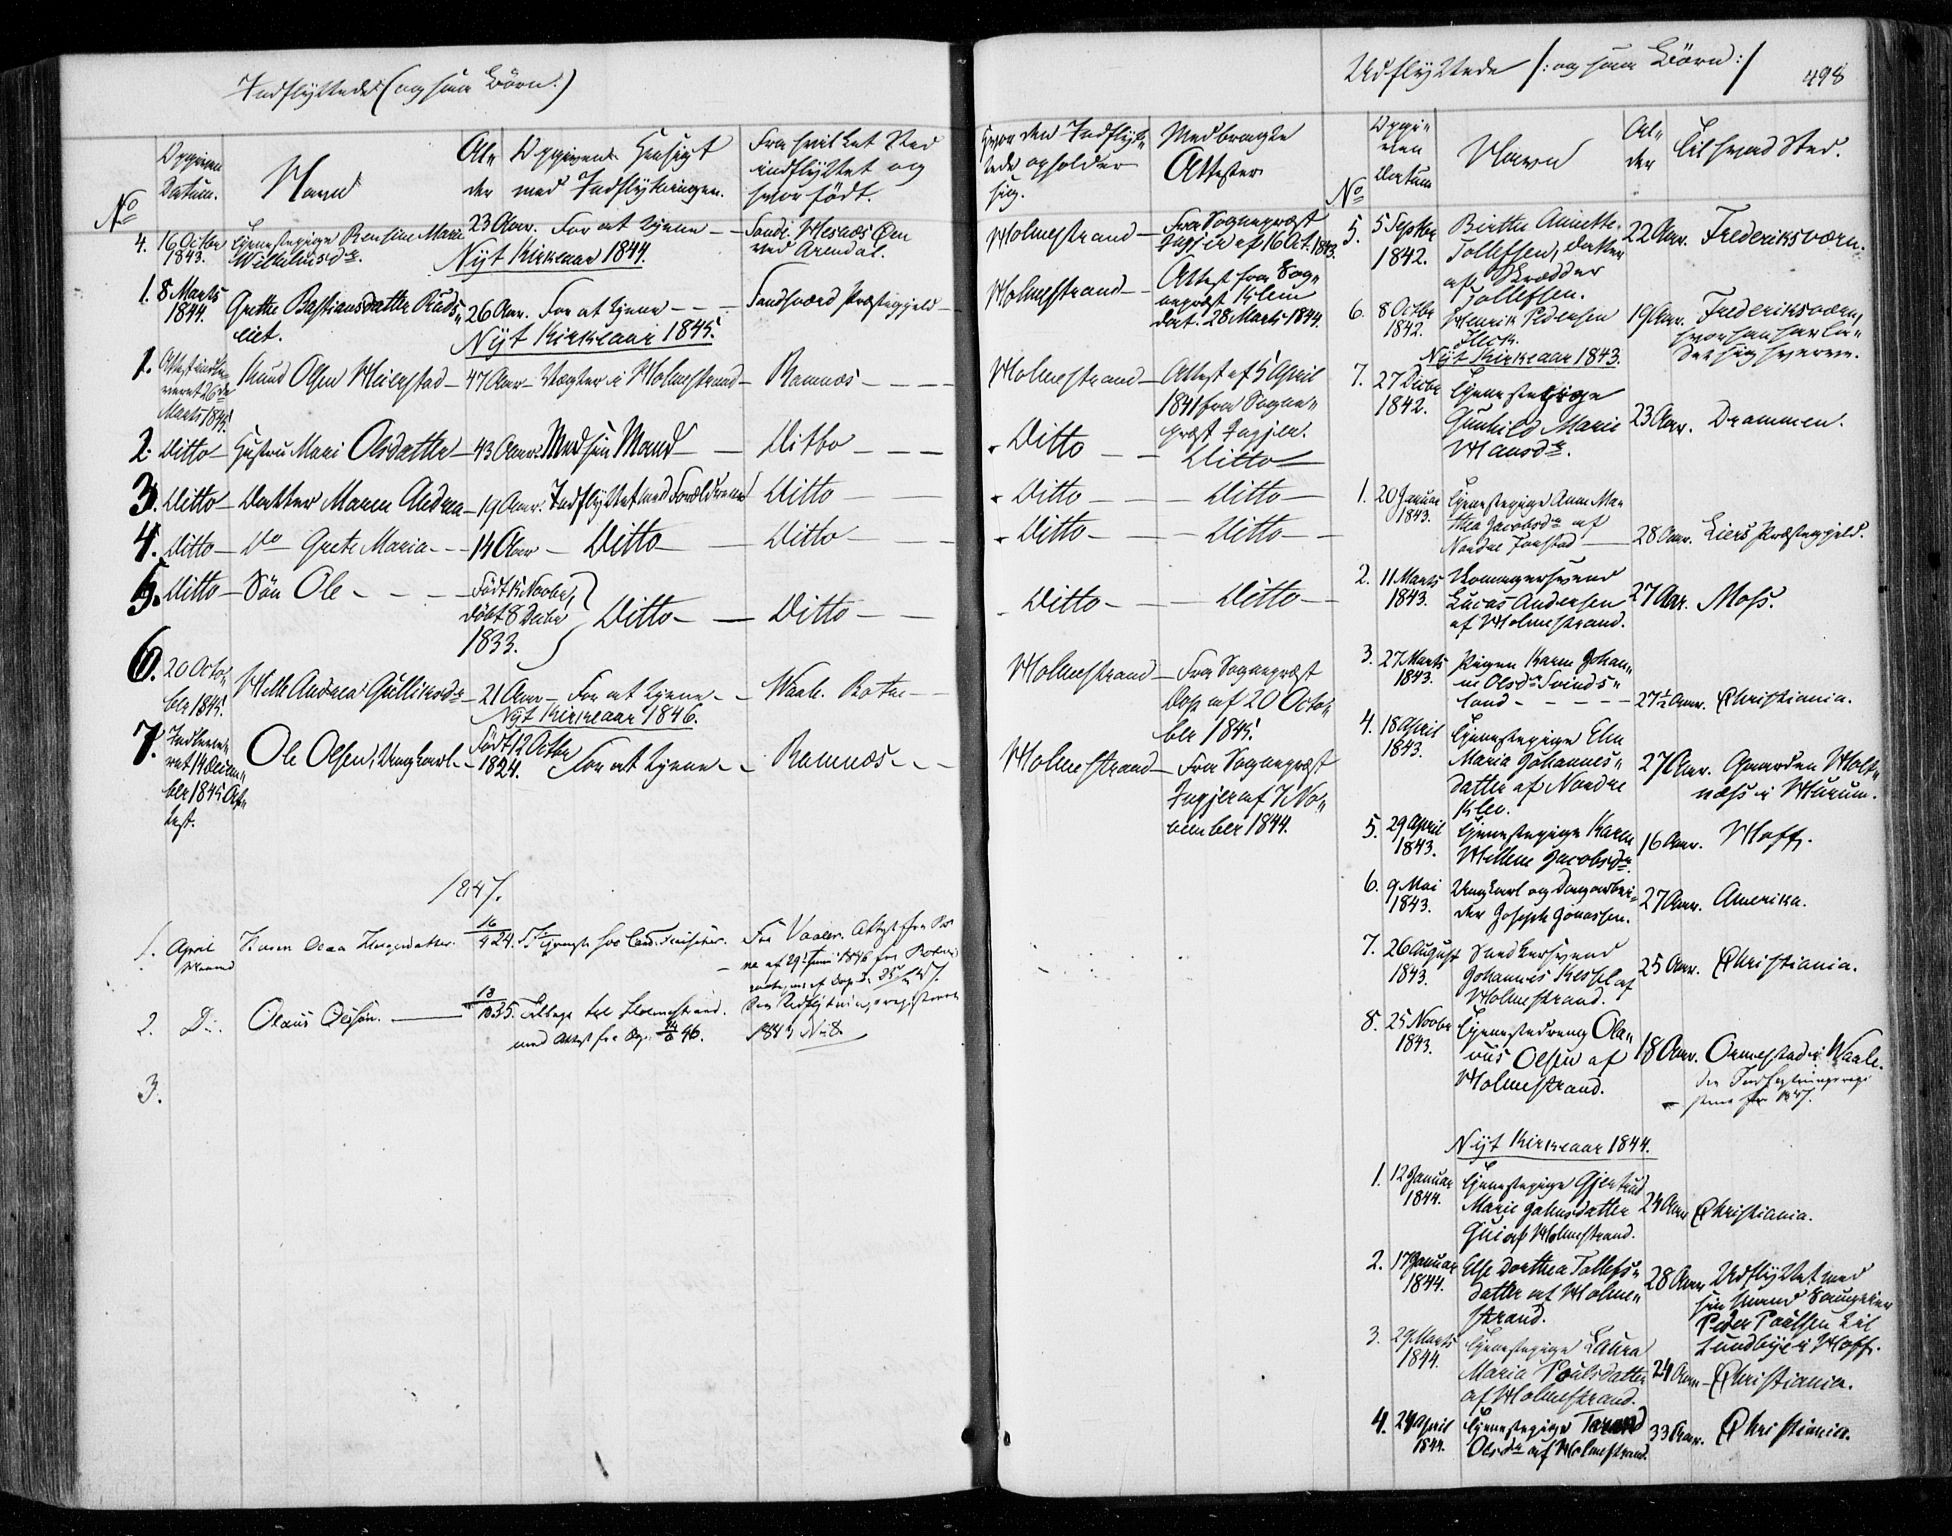 Indflyttede (og sine Børn.)
No
Opgiven Datum.
Navn
Alder
Opgivende Hensigt med Indflytningen.
Fra hvilket Sted indflyttet og hvor født.
Hvor den Indflyttede opholder sig.
Medbragte Attester
4. 16 Octbr 1843. Tjenestepige Rensine Marie Wilhelmsdr. 23 Aar. For at tjene — Hesnæs Øen ved Arendal. Holmestrand — Fra Sognepræst af 16 Oct. 1843.
Nyt Kirkeaar 1844.
1. 8 Marts 1844. Grethe Bastiansdatter 26 Aar. For at tjene — Sandsværd Præstegjeld — Holmestrand — Attest fra Sognepræst Klem dat. 28 Marts 1844.
Nyt Kirkeaar 1845.
1. Attest indleveret 26de Marts 1845. Knud Olsen Meierstad — 47 Aar — Vægter i Holmestrand — Ramnæs — Holmestrand — Attest af 5 April 1841 fra Sognepræst
2. Ditto — Hustru Mari Olsdatter — 43 Aar. Med sin Mand — Ditto — Ditto — Ditto
3. Ditto — Datter Maren Andrea — 19 Aar. Indflyttet med Forældrene Ditto — Ditto — Ditto —
4. Ditto — Do Grete Maria — 14 Aar — Ditto — Ditto — Ditto — Ditto —
5. Ditto — Søn Ole — Født 15 Novbr, døbt 8 Debr 1833. Ditto — Ditto — Ditto — Ditto —
6. 20 October 1845. Andrea Gulliksdr — 21 Aar — For at tjene — Holmestrand — Fra Sognepræst af 20 October 1845.
Nyt Kirkeaar 1846.
7. Indleveret 14 December 1845 Attest. Ole Olsen, Ungkarl — Født 12 Octbr 1824. For at tjene — Ramnæs — Holmestrand — Fra Sognepræst af 7 November 1844.
1847.
1. April Maaned Karen 16/4 24. Fra Vaaler. Attest fra
2. Do. Olaus Olsen. — 35. Tilbage til Holmestrand. med Attest fra 46. See Udflytningsregisteret 1843 No 8
3.
Udflyttede /: og sine Børn :/
498
No
Opgiven Datum
Navn
Alder
Til hvad Sted.
5. 5 Septbr 1842. Birthe Annette Tollefsen, datter af Skrædder Tollefsen. 22 Aar. Frederiksværn.
6. 8 Octbr 1842. Henrik Pedersen 19 Aar. Frederiksværn, hvor han har ladet sig hverve.
Nyt Kirkeaar 1843.
7. 27 Decbr 1842. Tjenestepige Gunhild Marie Hansdr. 23 Aar. Drammen.
1. 20 Januar 1843. Tjenestepige Anne Mathea Jacobsdr af Nordre — 28 Aar. Liers Præstegjeld.
2. 11 Marts 1843. Lucas Andersen af Holmestrand. 27 Aar. Moss.
3. 27 Marts 1843. Pigen Karen Johanne Olsdr — 27½ Aar. Christiania.
4. 18 April 1843. Tjenestepige Elen Maria Johannesdatter af Nordre 27 Aar. Gaarden i Hurum.
5. 29 April 1843. Tjenestepige Karen Jacobsdr. 16 Aar. Hoff.
6. 9 Mai 1843. Ungkarl og Dagarbeider Joseph Jonassen. 27 Aar. Amerika.
7. 26 August 1843. Snedkersvend Johannes af Holmestrand. 25 Aar. Christiania.
8. 25 Novbr 1843. Tjenestedreng Olaus Olsen af Holmestrand. 18 Aar. i Waale. See Indflytningsregisteret for 1847.
Nyt Kirkeaar 1844.
1. 12 Januar 1844. Tjenestepige Gjertrud Marie af Holmestrand. 24 Aar Christiania.
2. 17 Januar 1844. Else Dorthea Tollefsdatter af Holmestrand. 28 Aar Udflyttet med sin Mand Peder Poulsen til Sundbye i Hoff.
3. 29 Marts 1844. Tjenestepige Laura Maria Poulsdatter af Holmestrand. 24 Aar — Christiania.
4. 24 April 1844. Tjenestepige Olsdr af Holmestrand. 33 Aar. Christiania.